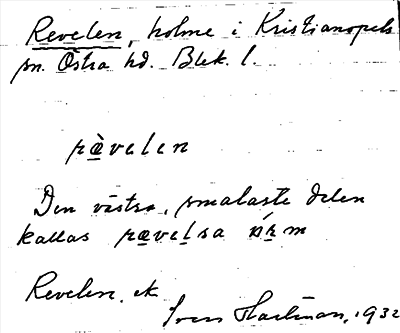 Revelen, holme i Kristianopels
sn. Östra hd. Blek. l.
rævelen
Den västra, smalaste delen
kallas rævelsa
Revelen, ek
Sven Hartman, 1932